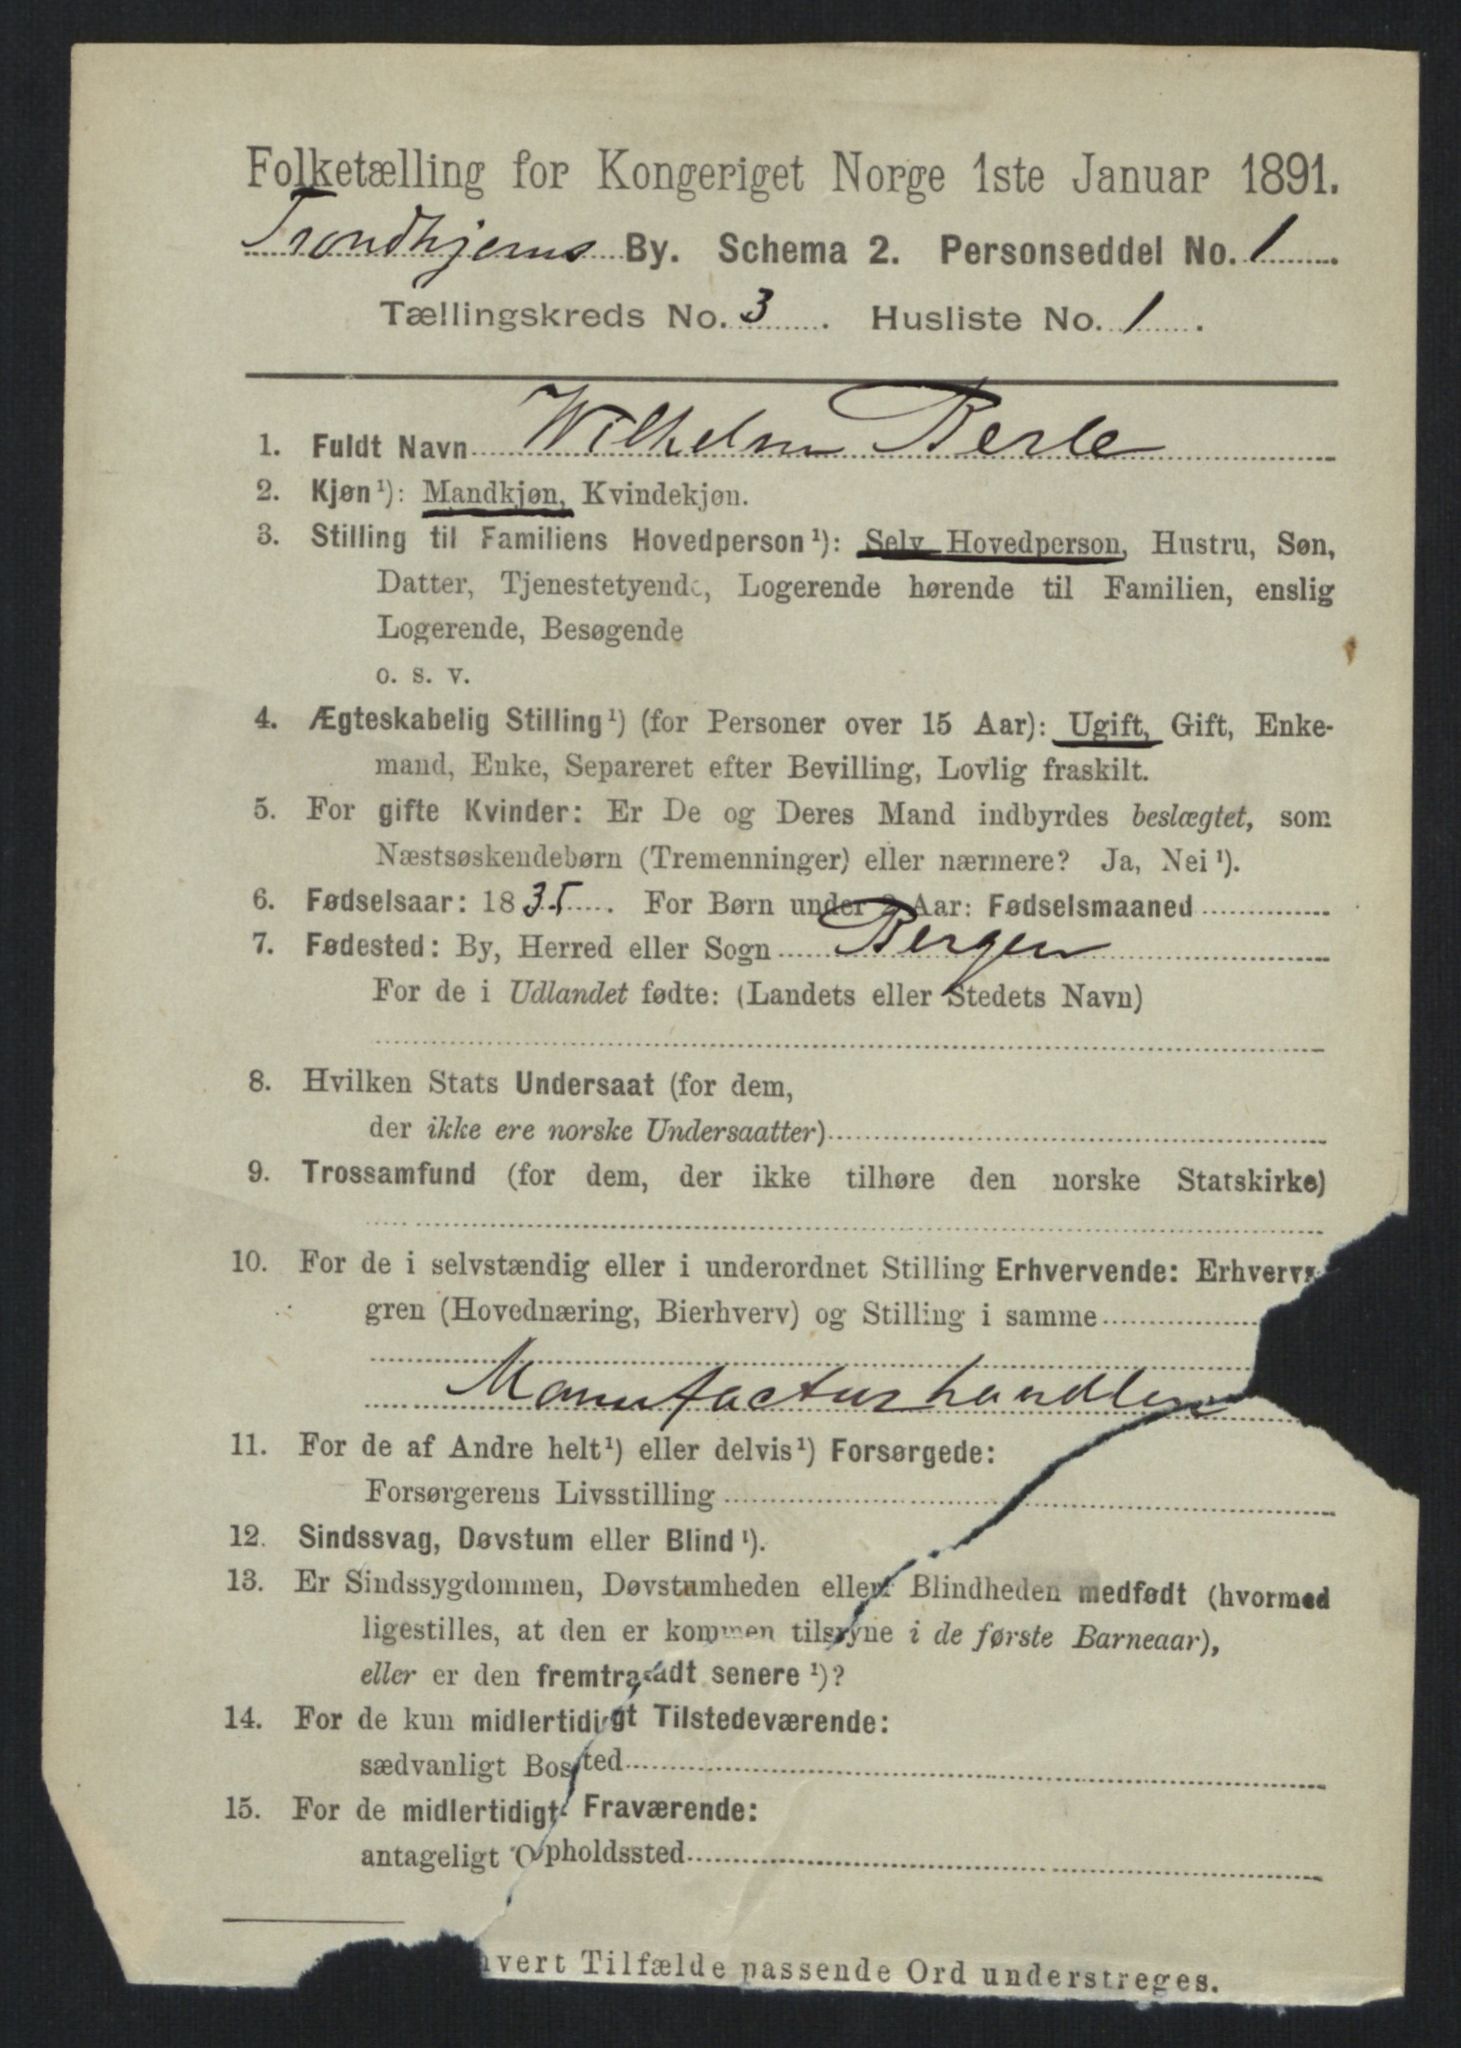 Folketælling for Kongeriget Norge 1ste Januar 1891.
Trondhjems By. Schema 2. Personseddel No. 1.
Tællingskreds No. 3. Husliste No. 1.
1. Fuldt Navn Wilhelm Berle
2. Kjøn ¹): Mandkjøn, Kvindekjøn.
3. Stilling til Familiens Hovedperson ¹): Selv Hovedperson, Hustru, Søn,
Datter, Tjenestetyende, Logerende hørende til Familien, enslig
Logerende, Besøgende
o. s. v.
4. Ægteskabelig Stilling ¹) (for Personer over 15 Aar): Ugift, Gift, Enke-
mand, Enke, Separeret efter Bevilling, Lovlig fraskilt.
5. For gifte Kvinder: Er De og Deres Mand indbyrdes beslægtet, som
Næstsøskendebørn (Tremenninger) eller nærmere? Ja, Nei ¹).
6. Fødselsaar: 1835. For Børn under 2 Aar: Fødselsmaaned
7. Fødested: By, Herred eller Sogn Bergen
For de i Udlandet fødte: (Landets eller Stedets Navn)
8. Hvilken Stats Undersaat (for dem,
der ikke ere norske Undersaatter)
9. Trossamfund (for dem, der ikke tilhøre den norske Statskirke)
10. For de i selvstændig eller i underordnet Stilling Erhvervende: Erhvervs
gren (Hovednæring, Bierhverv) og Stilling i samme
Manufacturhandler
11. For de af Andre helt ¹) eller delvis ¹) Forsørgede:
Forsørgerens Livsstilling
12. Sindssvag, Døvstum eller Blind ¹).
13. Er Sindssygdommen, Døvstumheden eller Blindheden medfødt (hvormed
ligestilles, at den er kommen tilsyne i de første Barneaar),
eller er den fremtraadt senere ¹)?
14. For de kun midlertidigt Tilstedeværende:
sædvanligt Bosted
15. For de midlertidigt Fraværende:
antageligt Opholdssted
hvert Tilfælde passende Ord understreges.